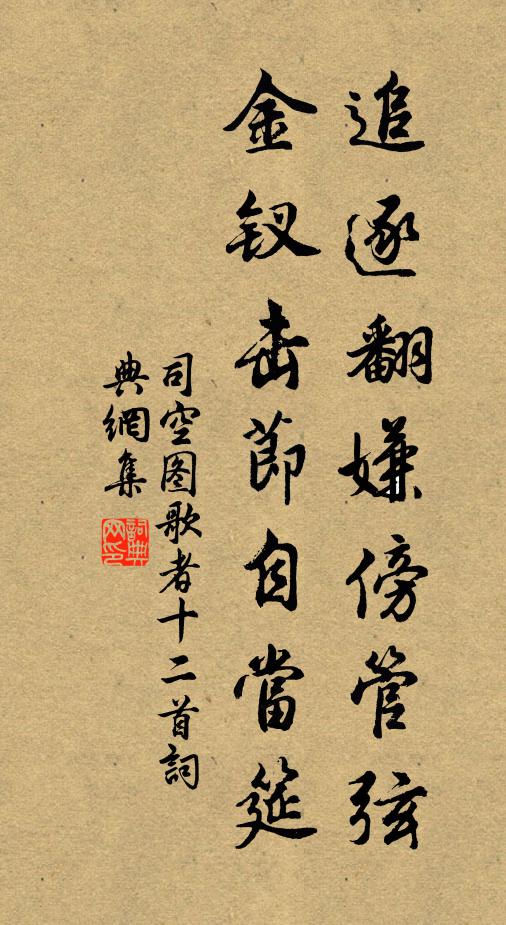 追逐翻嫌傍管弦
金钗击節自當筵
司空图歌者十二首詞
典網集
詞典网印